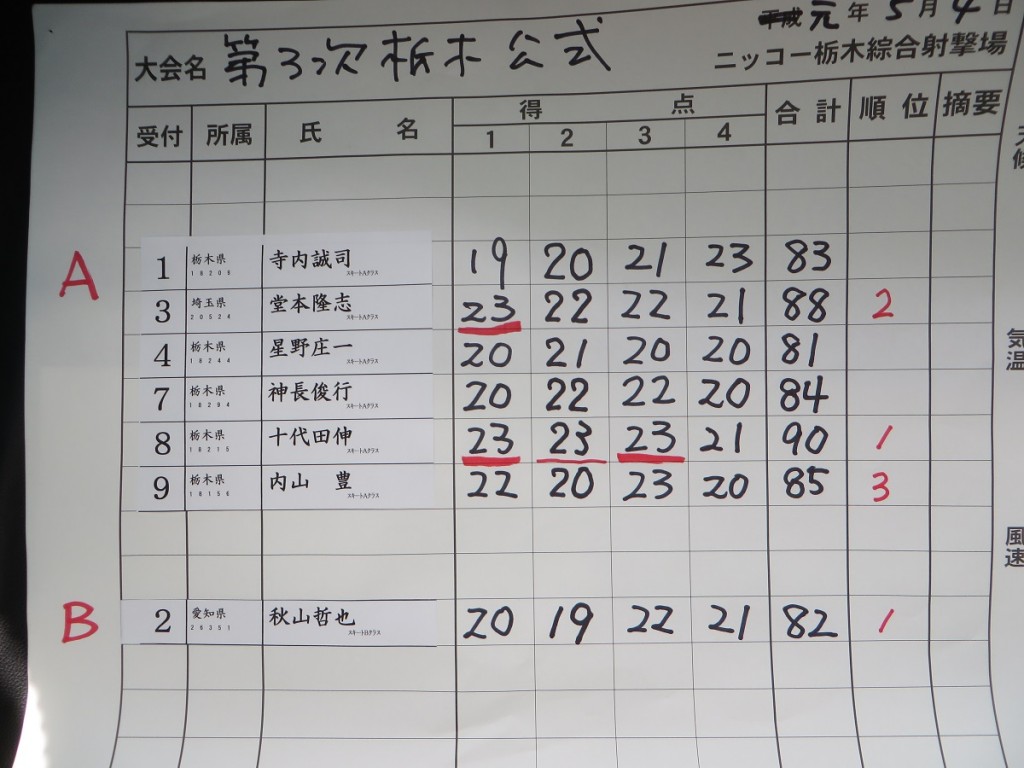 平成 元 年 5 月 4 日
大会名 第3次栃木公式 ニッコー栃木綜合射撃場
受付 所属 氏 名 得 点 合計 順位 摘要
1 2 3 4
天候
A
1 栃木県 寺内誠司 19 20 21 23 83
スキートAクラス
3 埼玉県 堂本隆志 23 22 22 21 88 2
20524 スキートAクラス
気温
4 栃木県 星野庄一 20 21 20 20 81
18244 スキートAクラス
7 栃木県 神長俊行 20 22 22 20 84
18294 スキートAクラス
8 栃木県 十代田伸 23 23 23 21 90 1
18215 スキートAクラス
9 栃木県 内山 豊 22 20 23 20 85 3
18156 スキートAクラス
風速
B
2 愛知県 秋山哲也 20 19 22 21 82 1
26351 スキートBクラス